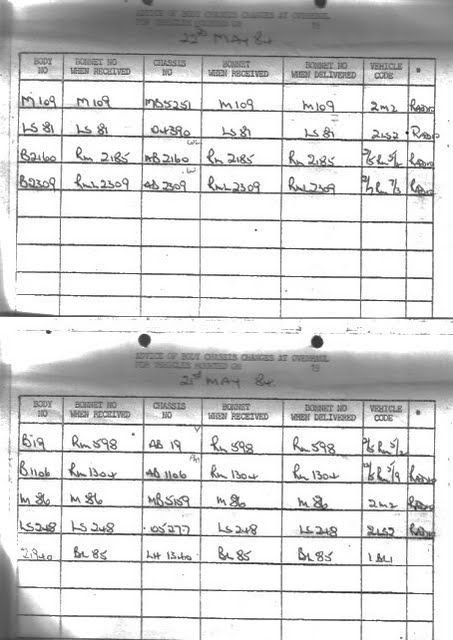 ADVICE OF BODY CHASSIS CHANGES AT OVERHAUL
FOR VEHICLES MOUNTED ON 19
22nd MAY 84
BODY NO BONNET NO WHEN RECEIVED CHASSIS NO BONNET WHEN RECEIVED BONNET WHEN DELIVERED VEHICLE CODE *
M109 M109 MB5251 M109 M109 2M2 RADIO
LS 81 LS 81 04390 LS 81 LS 81 2LS2 RADIO
B2160 RM 2185 AB 2160 RM 2185 RM 2185 RADIO
B2309 RML2309 AB 2309 RML2309 RML2309 RADIO
ADVICE OF BODY CHASSIS CHANGES AT OVERHAUL
FOR VEHICLES MOUNTED ON 19
21st MAY 84
BODY NO BONNET NO WHEN RECEIVED CHASSIS NO BONNET WHEN RECEIVED BONNET WHEN DELIVERED VEHICLE CODE *
B19 RM598 AB 19 RM598 RM598
B1106 RM 1304 AB 1106 RM 1304 RM 1304 RADIO
M 86 M 86 MB5159 M 86 M 86 2M2 RADIO
LS248 LS 248 05277 LS 248 LS 248 2LS2 RADIO
BL 85 LH 1340 BL 85 BL 85 1BL1